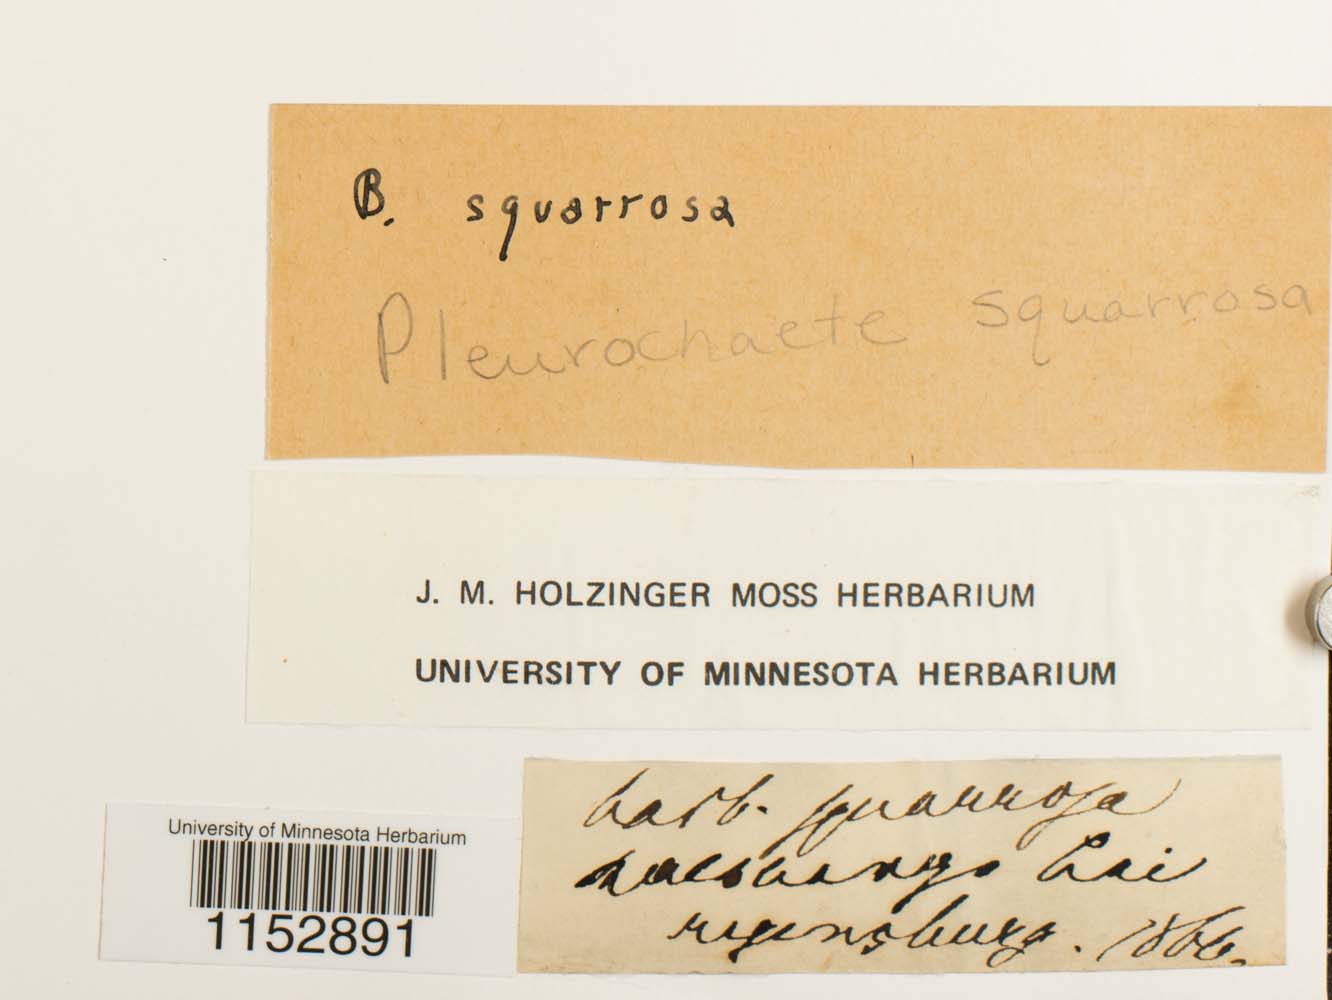 B. squarrosa
Pleurochaete squarrosa
J. M. HOLZINGER MOSS HERBARIUM
UNIVERSITY OF MINNESOTA HERBARIUM
University of Minnesota Herbarium
1152891
barb. squarrosa
bei
regensburg. 1866.